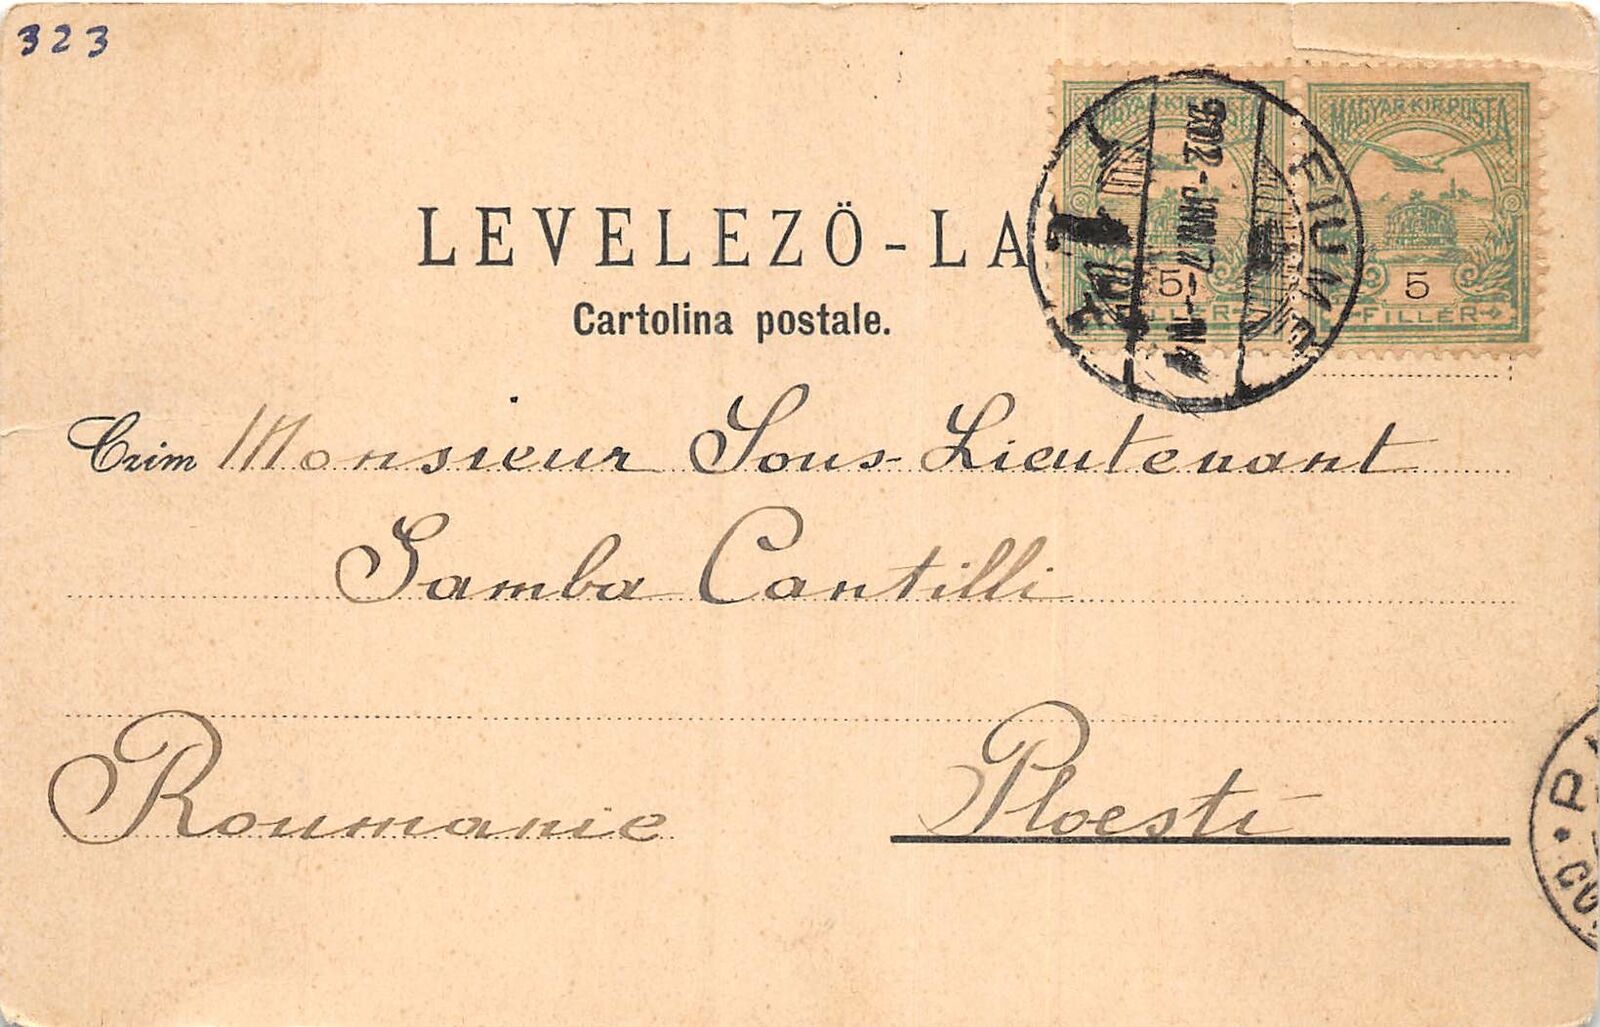 323
MAGYAR·KIR·POSTA MAGYAR·KIR·POSTA
5 FILLER 5 FILLER
FIUME
902 JAN 17
LEVELEZÖ-LA
Cartolina postale.
Czim Monsieur Sous-Lieutenant
Samba Cantilli
Roumanie Ploesti